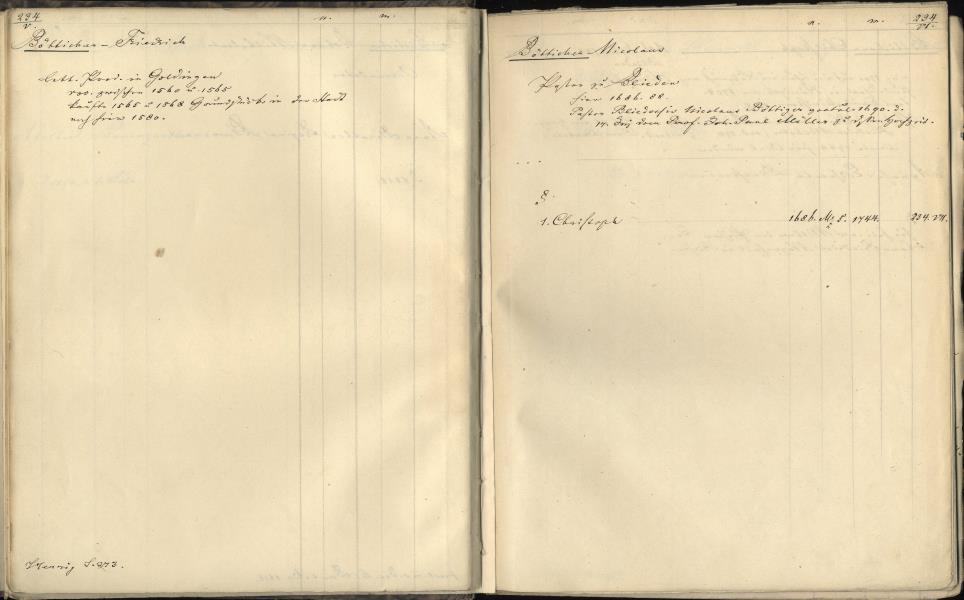 234
V
n.
m.
Bötticher - Friedrich
lett. Pred. in Goldingen
voc. zwischen 1560 u. 1565
kaufte 1565 u 1568 Grundstücke in der Stadt
noch hier 1580.
Hennig S. 273.
n.
m.
234
VI.
Bötticher Nicolaus
Pastor zu Blieden
hier 1686. 88.
Pastor Bliedensis Nicolaus Böttiger gratul. 1690. d.
14. dem Prof. Joh. Paul Möller zu Hochzeit.
...
§.
1. Christoph 1686. 1744. 234. VII.